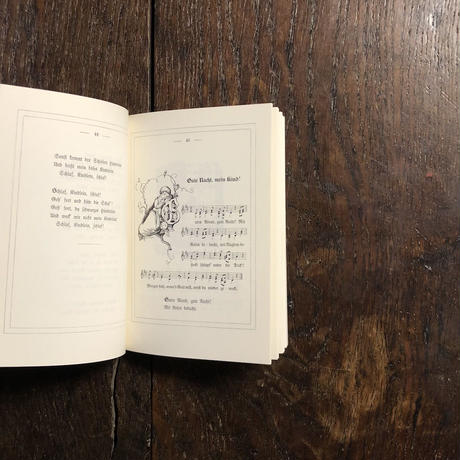 44
Sonst kommt der Schäfers Hündelein
Und beißt mein böses Kindelein
Schlaf, Kindlein, schlaf!
Schlaf, Kindlein, schlaf!
Geh' fort und hüt' die Schaf'!
Geh' fort, du schwarzes Hündelein
Und weck mir nicht mein Kindelein!
Schlaf, Kindlein, schlaf!
45
Gute Nacht, mein Kind!
G
ten Abend, gut' Nacht! Mit
Rosen be-dacht, mit Näglein be-
steckt schlupf' unter die Deck'!
Morgen früh, wenn's Gott will, wirst du wieder ge-weckt.
Guten Abend, gute Nacht!
Mit Rosen bedacht,